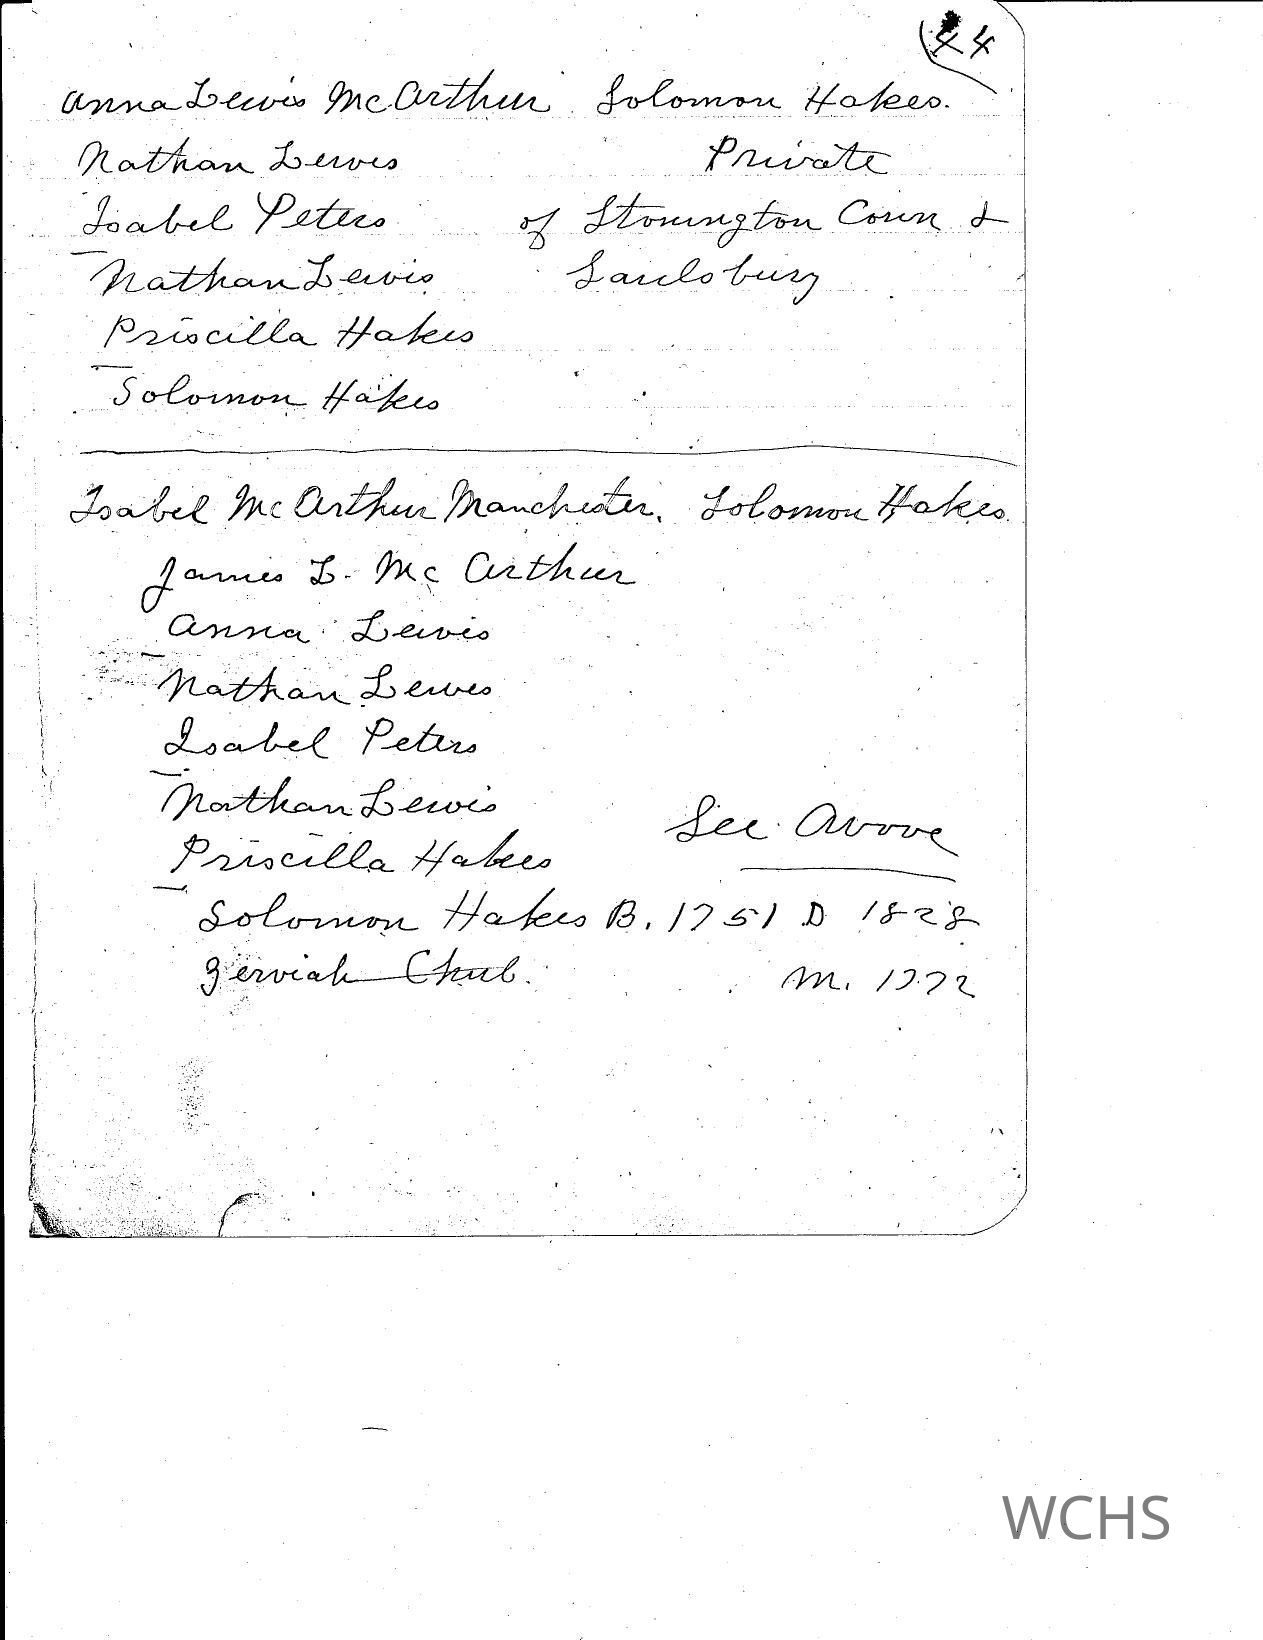 44
Anna Lewis McArthur Solomon Hakes.
Nathan Lewis Private
Isabel Peters of Stonington Conn &
Nathan Lewis Saulsbury
Priscilla Hakes
Solomon Hakes
Isabel McArthur Manchester. Solomon Hakes
James L. McArthur
Anna Lewis
Nathan Lewis
Isabel Peters
Nathan Lewis See Above
Priscilla Hakes
Solomon Hakes B. 1751 D 1828
Zerviah Chub. M. 1772
WCHS